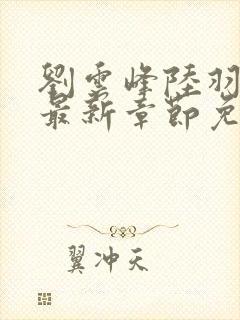 劉雲峰陸羽
最新章節免
翼冲天